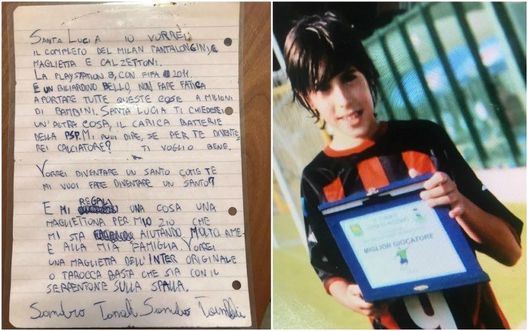 SANTA LUCIA IO VORREI
IL COMPLETO DEL MILAN PANTALONCINI,
MAGLIETTA E CALZETTONI.
LA PLAYSTATION 3, CON FIFA 2011.
E UN BILIARDINO BELLO, NON FARE FATICA
A PORTARE TUTTE QUESTE COSE A MILIONI
DI BAMBINI. SANTA LUCIA TI CHIEDEREI
UN'ALTRA COSA, IL CARICA BATTERIE
DELLA PSP. MI PUOI DIRE, SE PER TE DIVENTE
REI CALCIATORE? TI VOGLIO BENE.
VORREI DIVENTARE UN SANTO COME TE
MI VUOI FARE DIVENTARE UN SANTO?
E MI REGALI UNA COSA UNA
MAGLIETTONA PER MIO ZIO CHE
MI STA AIUTANDO MOLTO A ME
E ALLA MIA FAMIGLIA. VORREI
UNA MAGLIETTA DELL'INTER ORIGINALE
O TAROCCA BASTA CHE SIA CON IL
SERPENTONE SULLA SPALLA.
Sandro Tonali Sandro Tonali
MIGLIOR GIOCATORE